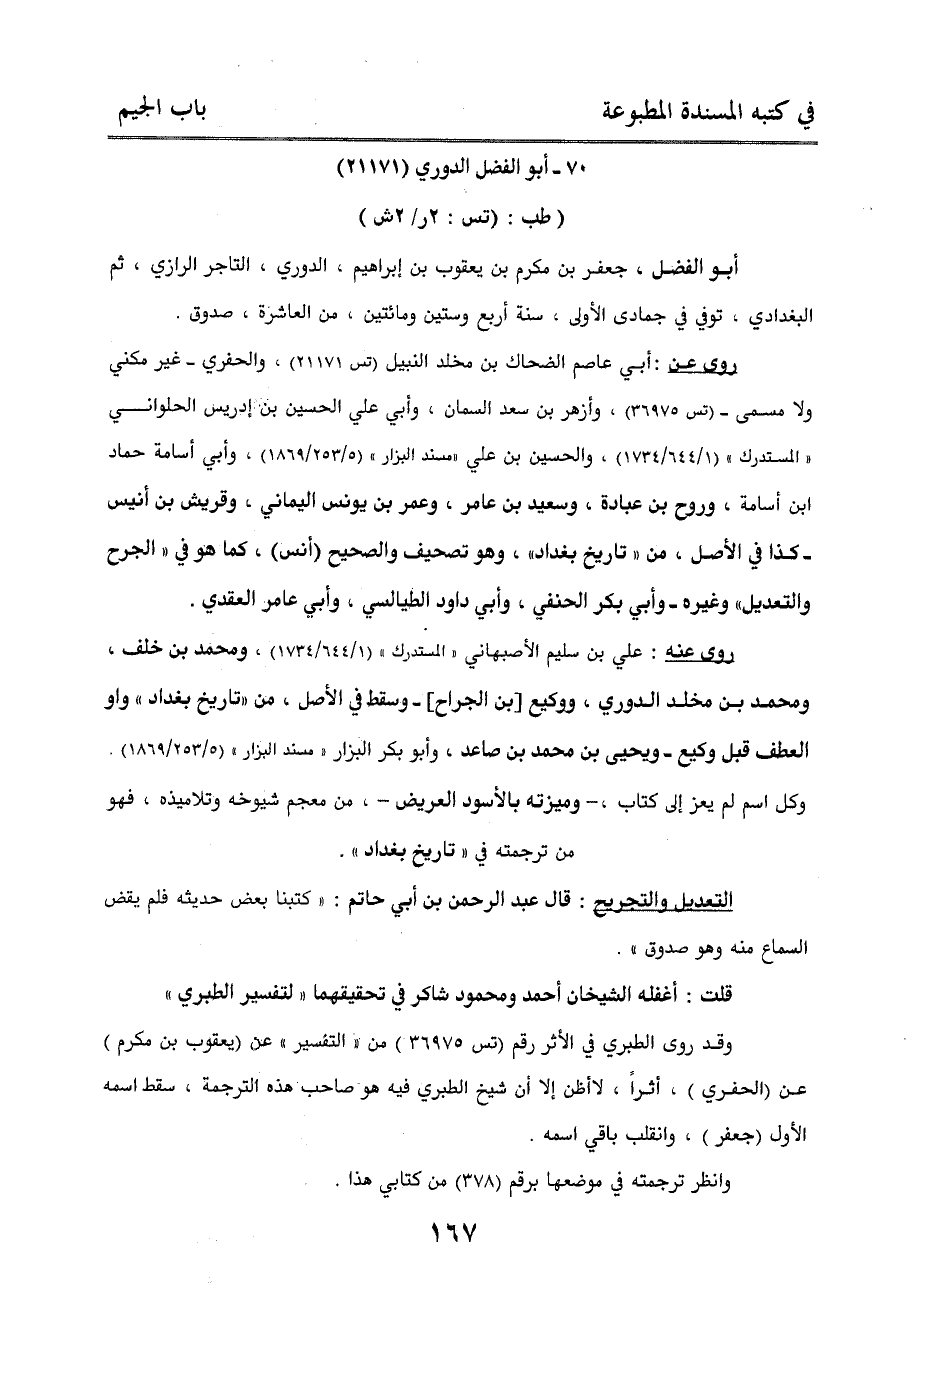 في كتبه المسندة المطبوعة باب الجيم
٧٠ - أبو الفضل الدوري (٢١١٧١)
( طب : (تس : ٢ر/ ٢ش )
أبو الفضل ، جعفر بن مكرم بن يعقوب بن إبراهيم ، الدوري ، التاجر الرازي ، ثم
البغدادي ، توفي في جمادى الأولى ، سنة أربع وستين ومائتين ، من العاشرة ، صدوق .
روى عن : أبي عاصم الضحاك بن مخلد النبيل (تس ٢١١٧١) ، والحفري - غير مكني
ولا مسمى - (تس ٣٦٩٧٥) ، وأزهر بن سعد السمان ، وأبي علي الحسين بن إدريس الحلواني
« المستدرك » (١٧٣٤/٦٤٤/١) ، والحسين بن علي «مسند البزار » (١٨٦٩/٢٥٣/٥) ، وأبي أسامة حماد
ابن أسامة ، وروح بن عبادة ، وسعيد بن عامر ، وعمر بن يونس اليماني ، وقريش بن أنيس
- كذا في الأصل ، من « تاريخ بغداد» ، وهو تصحيف والصحيح (أنس) ، كما هو في « الجرح
والتعديل» وغيره - وأبي بكر الحنفي ، وأبي داود الطيالسي ، وأبي عامر العقدي .
روى عنه : علي بن سليم الأصبهاني « المستدرك » (١٧٣٤/٦٤٤/١) ، ومحمد بن خلف ،
ومحمد بن مخلد الدوري ، ووكيع [بن الجراح] - وسقط في الأصل ، من «تاريخ بغداد » واو
العطف قبل وكيع - ويحيى بن محمد بن صاعد ، وأبو بكر البزار « مسند البزار » (١٨٦٩/٢٥٣/٥) .
وكل اسم لم يعز إلى كتاب ،- وميزته بالأسود العريض - ، من معجم شيوخه وتلاميذه ، فهو
من ترجمته في « تاريخ بغداد» .
التعديل والتجريح : قال عبد الرحمن بن أبي حاتم : « كتبنا بعض حديثه فلم يقض
السماع منه وهو صدوق » .
قلت : أغفله الشيخان أحمد ومحمود شاكر في تحقيقهما « لتفسير الطبري »
وقد روى الطبري في الأثر رقم (تس ٣٦٩٧٥ ) من « التفسير » عن (يعقوب بن مكرم )
عن (الحفري ) ، أثراً ، لاأظن إلا أن شيخ الطبري فيه هو صاحب هذه الترجمة ، سقط اسمه
الأول (جعفر ) ، وانقلب باقي اسمه .
وانظر ترجمته في موضعها برقم (٣٧٨) من كتابي هذا .
١٦٧